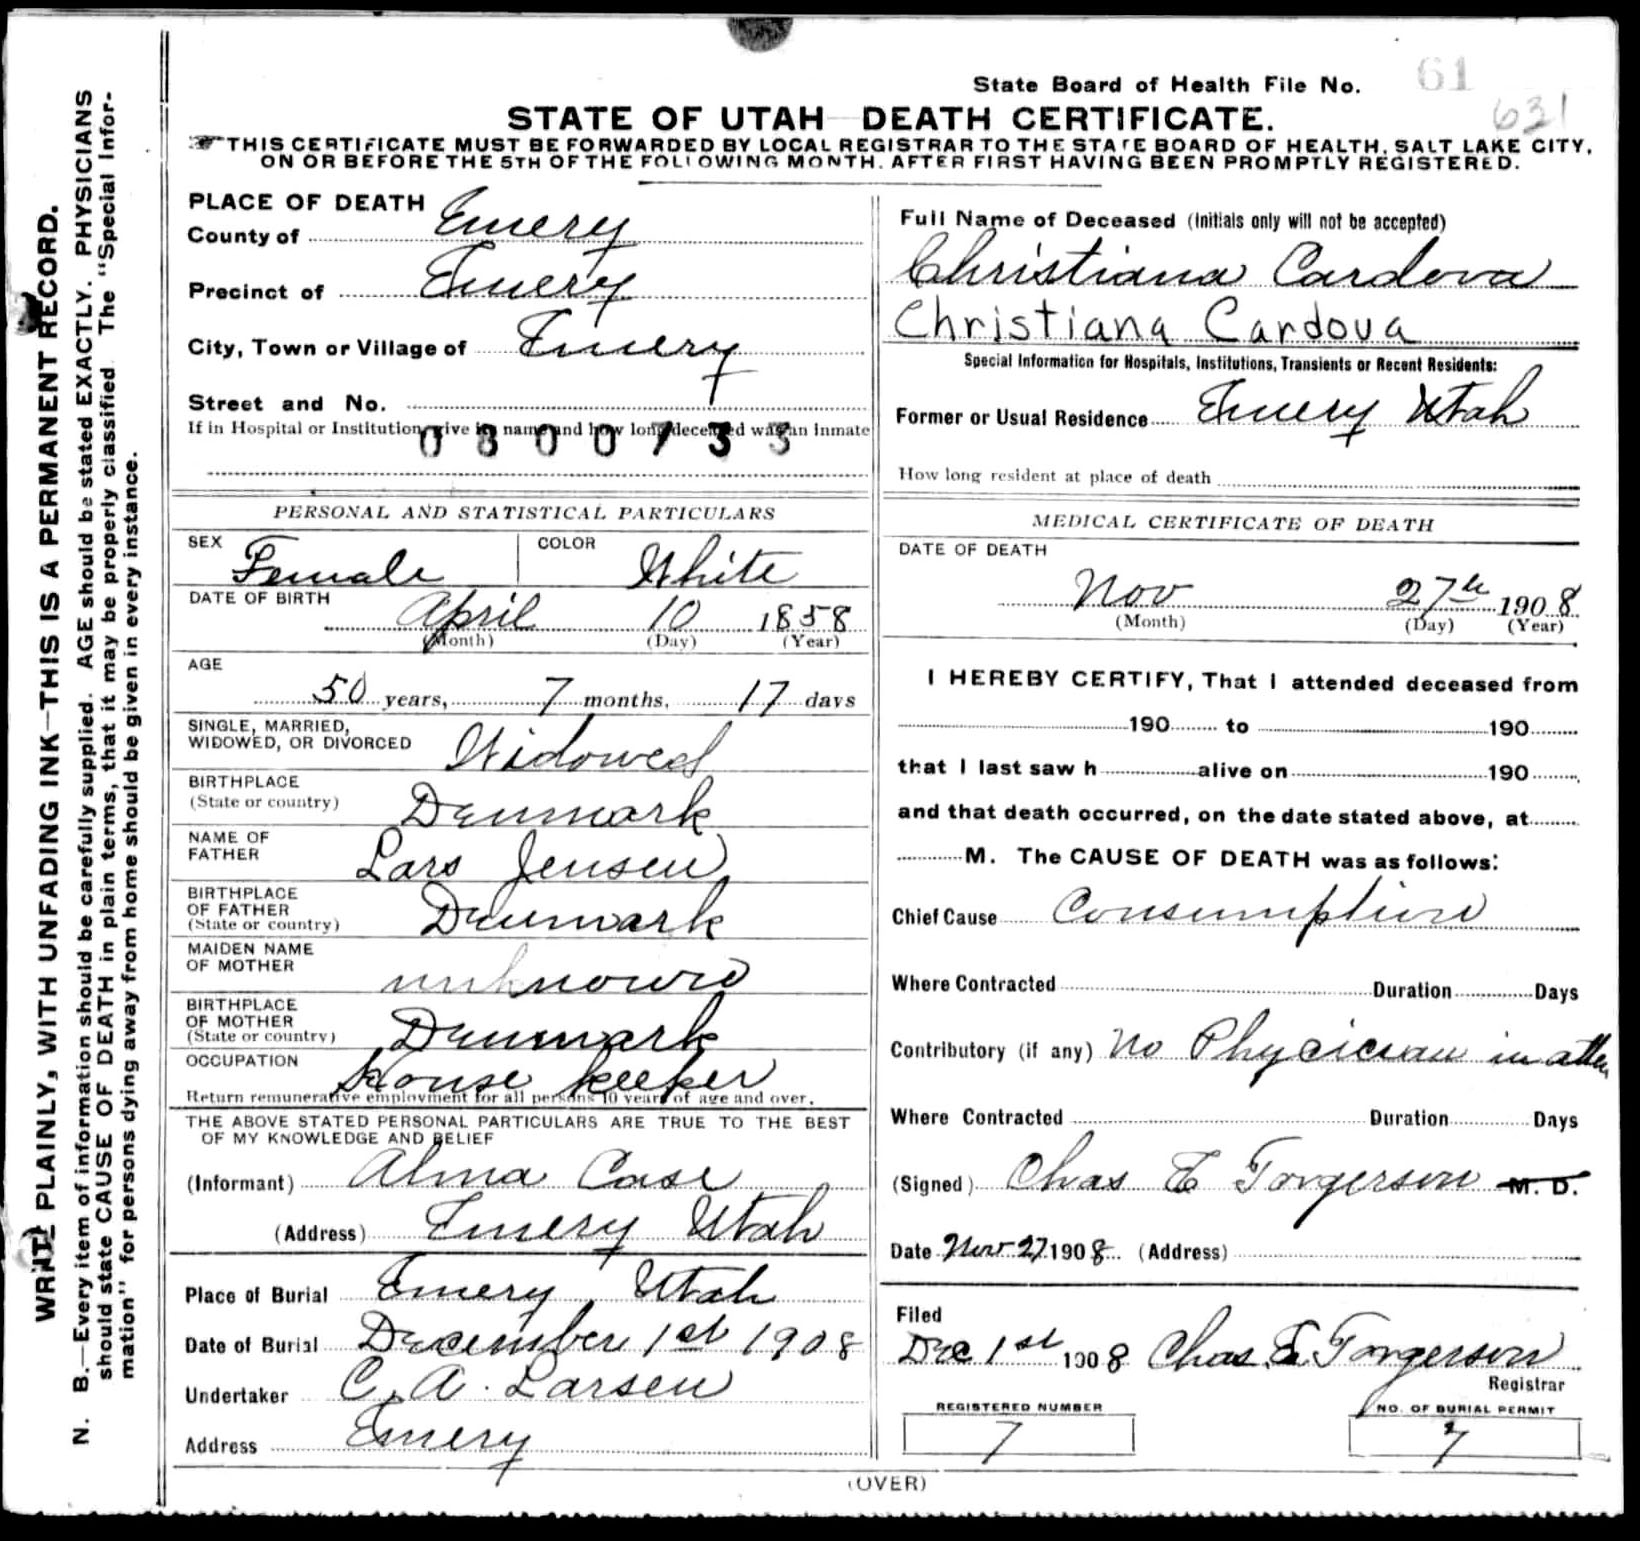 State Board of Health File No. 61
631
STATE OF UTAH—DEATH CERTIFICATE.
THIS CERTIFICATE MUST BE FORWARDED BY LOCAL REGISTRAR TO THE STATE BOARD OF HEALTH, SALT LAKE CITY,
ON OR BEFORE THE 5TH OF THE FOLLOWING MONTH. AFTER FIRST HAVING BEEN PROMPTLY REGISTERED.
WRITE PLAINLY, WITH UNFADING INK—THIS IS A PERMANENT RECORD.
N. B.—Every item of information should be carefully supplied. AGE should be stated EXACTLY. PHYSICIANS
should state CAUSE OF DEATH in plain terms, that it may be properly classified. The "Special Infor-
mation" for persons dying away from home should be given in every instance.
PLACE OF DEATH
County of Emery
Precinct of Emery
City, Town or Village of Emery
Street and No.
If in Hospital or Institution, give its name and how long deceased was an inmate
0800733
PERSONAL AND STATISTICAL PARTICULARS
SEX Female COLOR White
DATE OF BIRTH
April 10 1858
(Month) (Day) (Year)
AGE
50 years, 7 months, 17 days
SINGLE, MARRIED,
WIDOWED, OR DIVORCED Widowed
BIRTHPLACE
(State or country) Denmark
NAME OF
FATHER Lars Jensen
BIRTHPLACE
OF FATHER
(State or country) Denmark
MAIDEN NAME
OF MOTHER unknown
BIRTHPLACE
OF MOTHER
(State or country) Denmark
OCCUPATION House keeper
Return remunerative employment for all persons 10 years of age and over.
THE ABOVE STATED PERSONAL PARTICULARS ARE TRUE TO THE BEST
OF MY KNOWLEDGE AND BELIEF
(Informant) Alma Case
(Address) Emery Utah
Place of Burial Emery Utah
Date of Burial December 1st 1908
Undertaker C. A. Larsen
Address Emery
Full Name of Deceased (Initials only will not be accepted)
Christiana Cardova
Christiana Cardova
Special Information for Hospitals, Institutions, Transients or Recent Residents:
Former or Usual Residence Emery Utah
How long resident at place of death
MEDICAL CERTIFICATE OF DEATH
DATE OF DEATH
Nov 27th 1908
(Month) (Day) (Year)
I HEREBY CERTIFY, That I attended deceased from
190 to 190
that I last saw h alive on 190
and that death occurred, on the date stated above, at
M. The CAUSE OF DEATH was as follows:
Chief Cause Consumption
Where Contracted Duration Days
Contributory (if any) No Phycician in atten
Where Contracted Duration Days
(Signed) Chas E Torgerson M. D.
Date Nov 27 1908 (Address)
Filed
Dec 1st 1908 Chas. E. Torgerson
Registrar
REGISTERED NUMBER
7
NO. OF BURIAL PERMIT
7
(OVER)